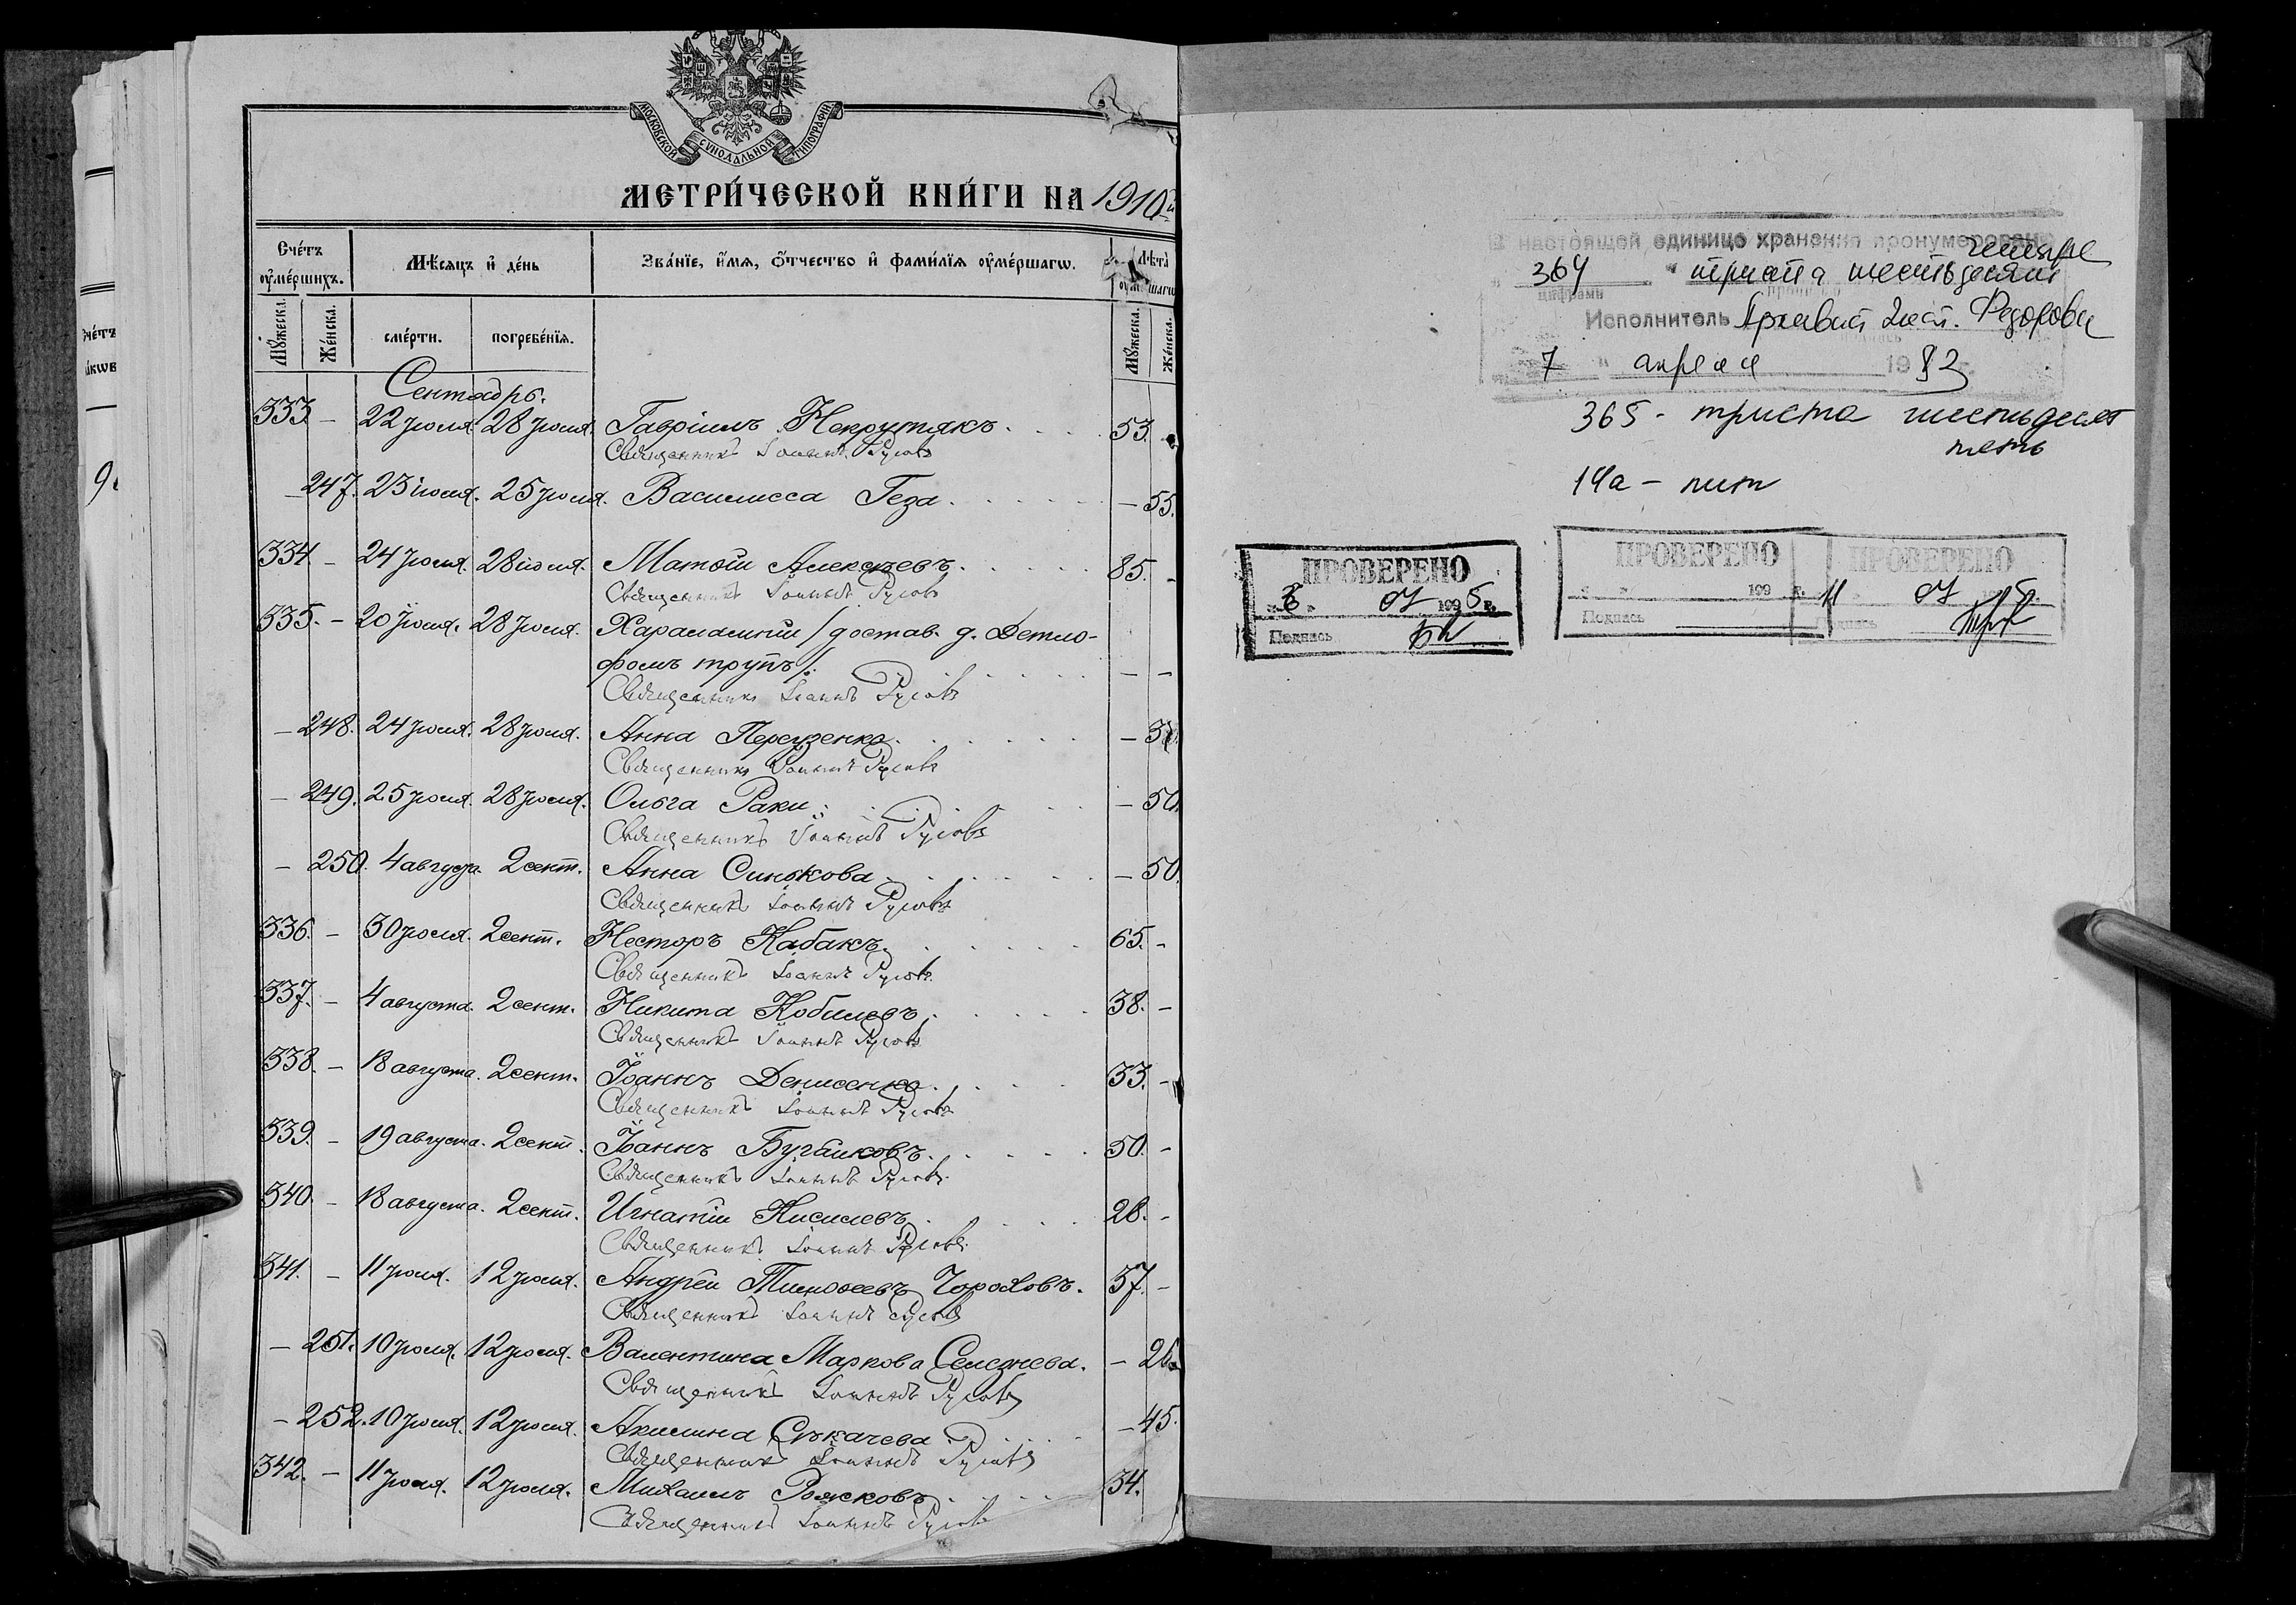 МОСКОВСКОЙ СѴНОДАЛЬНОЙ ТИПОГРАФІИ
МЕТРИ́ЧЕСКОЙ КНИ́ГИ НА 1910й
Сче́тъ ѹ҆ме́ршихъ.
Мѣсяцъ и҆ де́нь
Зва́нїе, и҆́мя, ѻ҆́тчество и҆ фами́лїя ѹ҆ме́ршагѡ.
Лѣта̀
Мꙋ́жеска.
Же́нска.
сме́рти.
погребе́нїя.
Мꙋ́жеска.
Же́нска.
Сентябрь.
333. – 22 іюля 28 іюля. Гавріилъ Некрутякъ. 53. -
Священникъ Іоаннъ Русовъ
– 247. 23 іюля. 25 іюля. Василисса Геза. – 55.
334. – 24 іюля. 28 іюля. Матѳій Алексѣевъ. 85. -
Священникъ Іоаннъ Русовъ
335. – 20 іюля. 28 іюля. Харалампій /достав. д. Детло-
фомъ трупъ/. – –
Священникъ Іоаннъ Русовъ
– 248. 24 іюля. 28 іюля. Анна Пересузенко.
Священникъ Іоаннъ Русовъ
– 249. 25 іюля. 28 іюля. Ольга Раки. – 50.
Священникъ Іоаннъ Русовъ
– 250. 4 августа. 2 сент. Анна Синькова. – 50.
Священникъ Іоаннъ Русовъ
336. – 30 іюля. 2 сент. Несторъ Кабакъ. 65. -
Священникъ Іоаннъ Русовъ
337. – 4 августа. 2 сент. Никита Кобилевъ. 38. –
Священникъ Іоаннъ Русовъ
338. – 18 августа. 2 сент. Іоаннъ Денисенко. 33. -
Священникъ Іоаннъ Русовъ
339. – 19 августа. 2 сент. Іоаннъ Бугайковъ. 50. -
Священникъ Іоаннъ Русовъ
340. – 18 августа. 2 сент. Игнатій Киселевъ. 28. -
Священникъ Іоаннъ Русовъ
341. – 11 іюля. 12 іюля. Андрей Тимоѳеевъ Гороховъ. 37. –
Священникъ Іоаннъ Русовъ
– 251. 10 іюля. 12 іюля. Валентина Маркова Селезнева. – 26.
Священникъ Іоаннъ Русовъ
– 252. 10 іюля. 12 іюля. Акилина Сѣкачева. – 45.
Священникъ Іоаннъ Русовъ
342. – 11 іюля. 12 іюля. Михаилъ Рожковъ. 34.
Священникъ Іоаннъ Русовъ
В настоящей единице хранения пронумеровано
четыре
364 триста шестьдесят
цифрами
Исполнитель Архивист 2 кат. Федорова
7 апреля 1983 г.
365 - триста шестьдесят
пять
14а - лит
ПРОВЕРЕНО
07 1995 г.
Подпись
ПРОВЕРЕНО
199 г.
Подпись
ПРОВЕРЕНО
11 07
Подпись